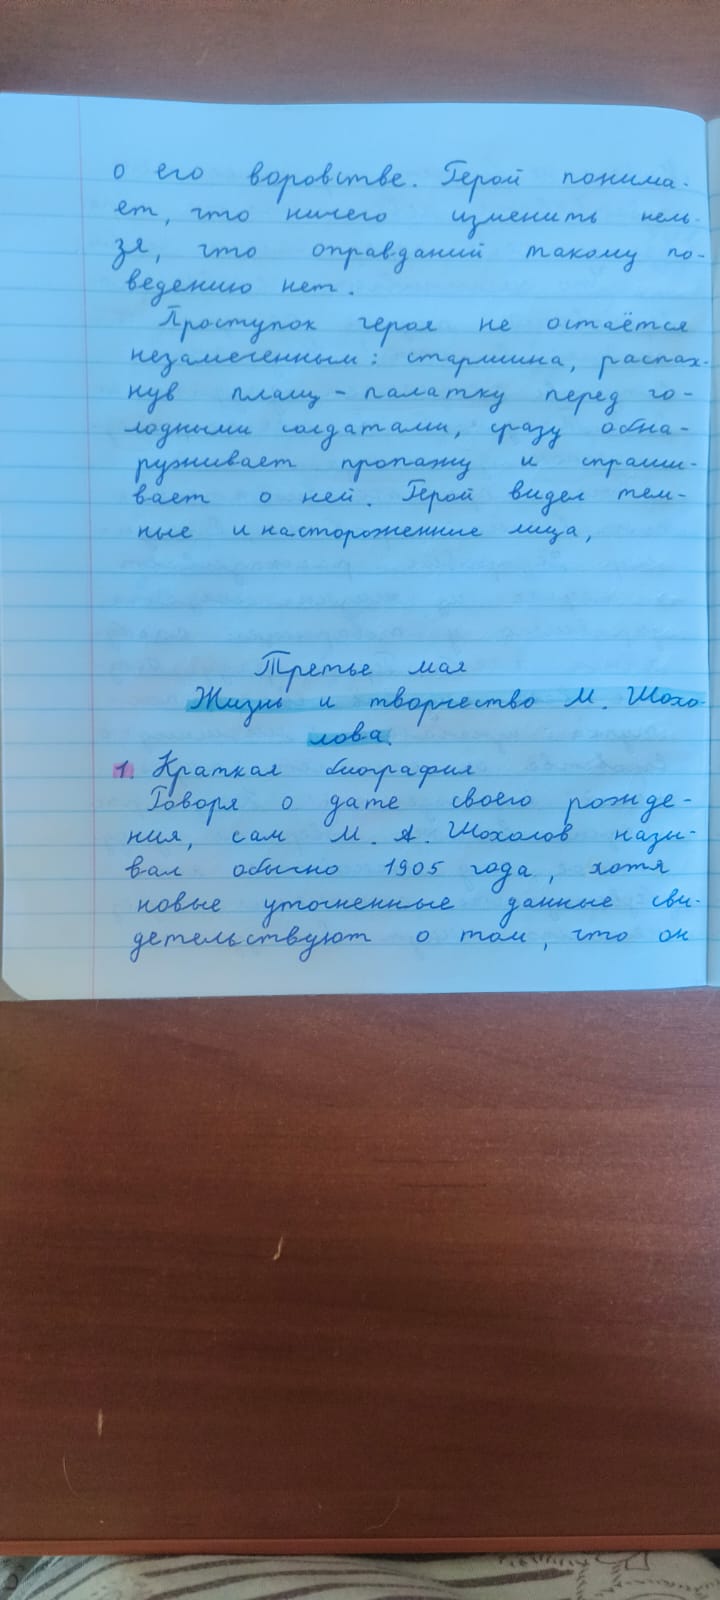 о его воровстве. Герой понима-
ет, что ничего изменить нель-
зя, что оправданий такому по-
ведению нет.
Проступок героя не остаётся
незамеченным: старшина, распах-
нув плащ-палатку перед го-
лодными солдатами, сразу обна-
руживает пропажу и спраши-
вает о ней. Герой видел тем-
ные и настороженные лица,
Третье мая
Жизнь и творчество М. Шохо-
лова.
1. Краткая биография
Говоря о дате своего рожде-
ния, сам М. А. Шохолов назы-
вал обычно 1905 года, хотя
новые уточненные данные сви-
детельствуют о том, что он